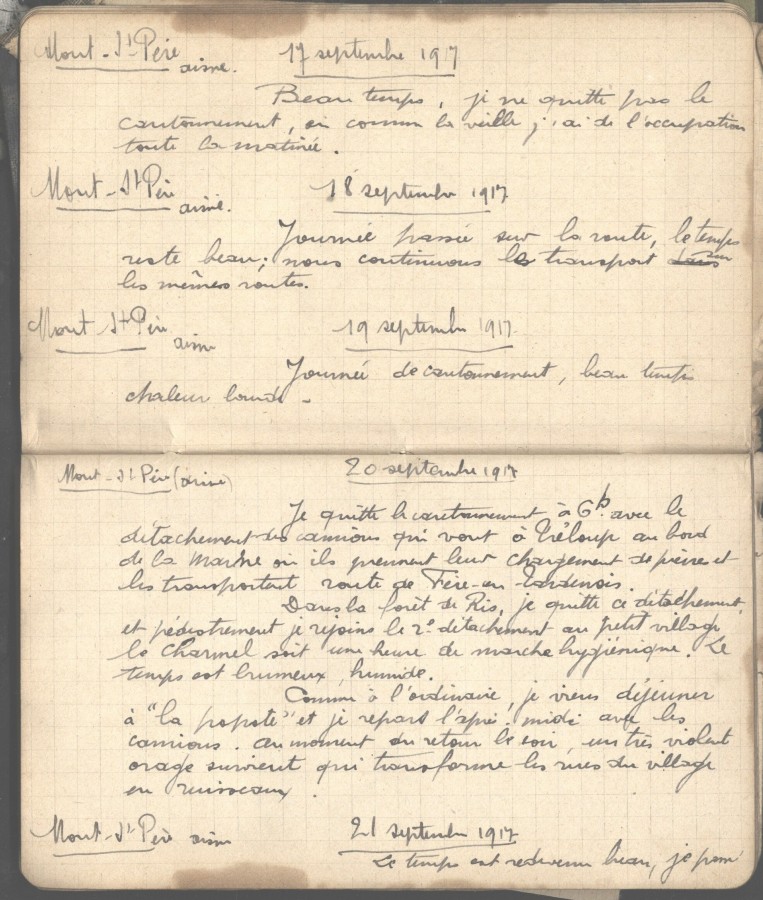 Mont-St Père aisne. 17 septembre 1917
Beau temps, je ne quitte pas le
cantonnement, où comme la veille j'ai de l'occupation
toute la matinée.
Mont-St Père aisne. 18 septembre 1917
Journée passée sur la route, le temps
reste beau; nous continuons le transport sur
les mêmes routes.
Mont St Père aisne 19 septembre 1917
Journée de cantonnement, beau temps
chaleur lourde -
Mont-St Père (aisne) 20 septembre 1917
Je quitte le cantonnement à 6h avec le
détachement des camions qui vont à Tréloup au bord
de la Marne où ils prennent leur chargement de pierres et
les transportent route de Fère-en Tardenois.
Dans la forêt de Ris, je quitte ce détachement,
et pédestrement je rejoins le 2e détachement au petit village
le Charmel soit une heure de marche hygiénique. Le
temps est brumeux, humide.
Comme à l'ordinaire, je viens déjeuner
à "la popote" et je repars l'après-midi avec les
camions. Au moment du retour le soir, un très violent
orage survient qui transforme les rues du village
en ruisseaux.
Mont-St Père aisne 21 septembre 1917
Le temps est redevenu beau, je